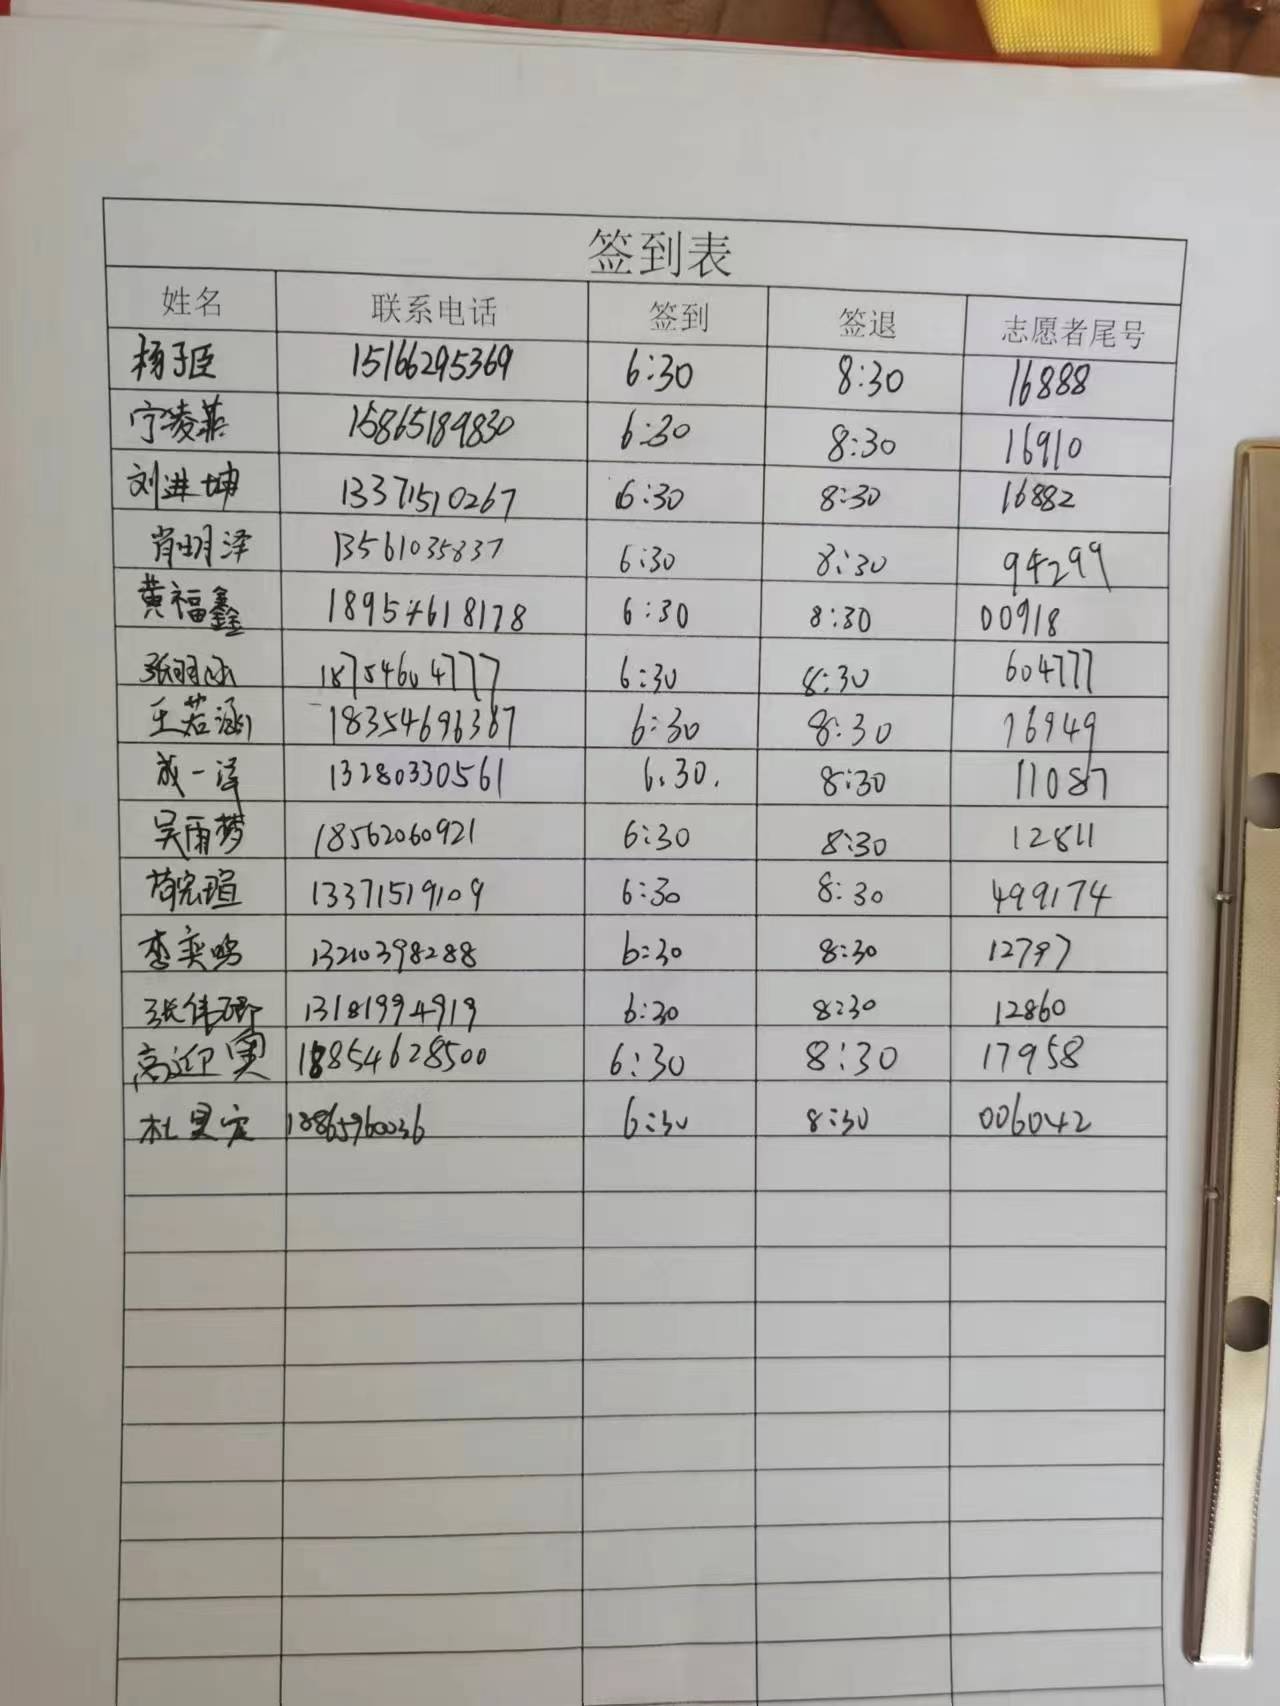 签到表
姓名 联系电话 签到 签退 志愿者尾号
杨子臣 15166295369 6:30 8:30 16888
宁凌菲 15865189830 6:30 8:30 16910
刘进坤 13371510267 6:30 8:30 16882
肖明泽 13561035837 6:30 8:30 94299
黄福鑫 18954618178 6:30 8:30 00918
张羽涵 18754604777 6:30 8:30 604777
王若涵 18354696387 6:30 8:30 16949
成一泽 13280330561 6:30. 8:30 11087
吴雨梦 18562060921 6:30 8:30 12811
苟宏瑄 13371519109 6:30 8:30 499174
李奕鸣 13210398288 6:30 8:30 12797
张伟卿 13181994919 6:30 8:30 12860
高迎 18854628500 6:30 8:30 17958
杜昊宸 18865960036 6:30 8:30 006042